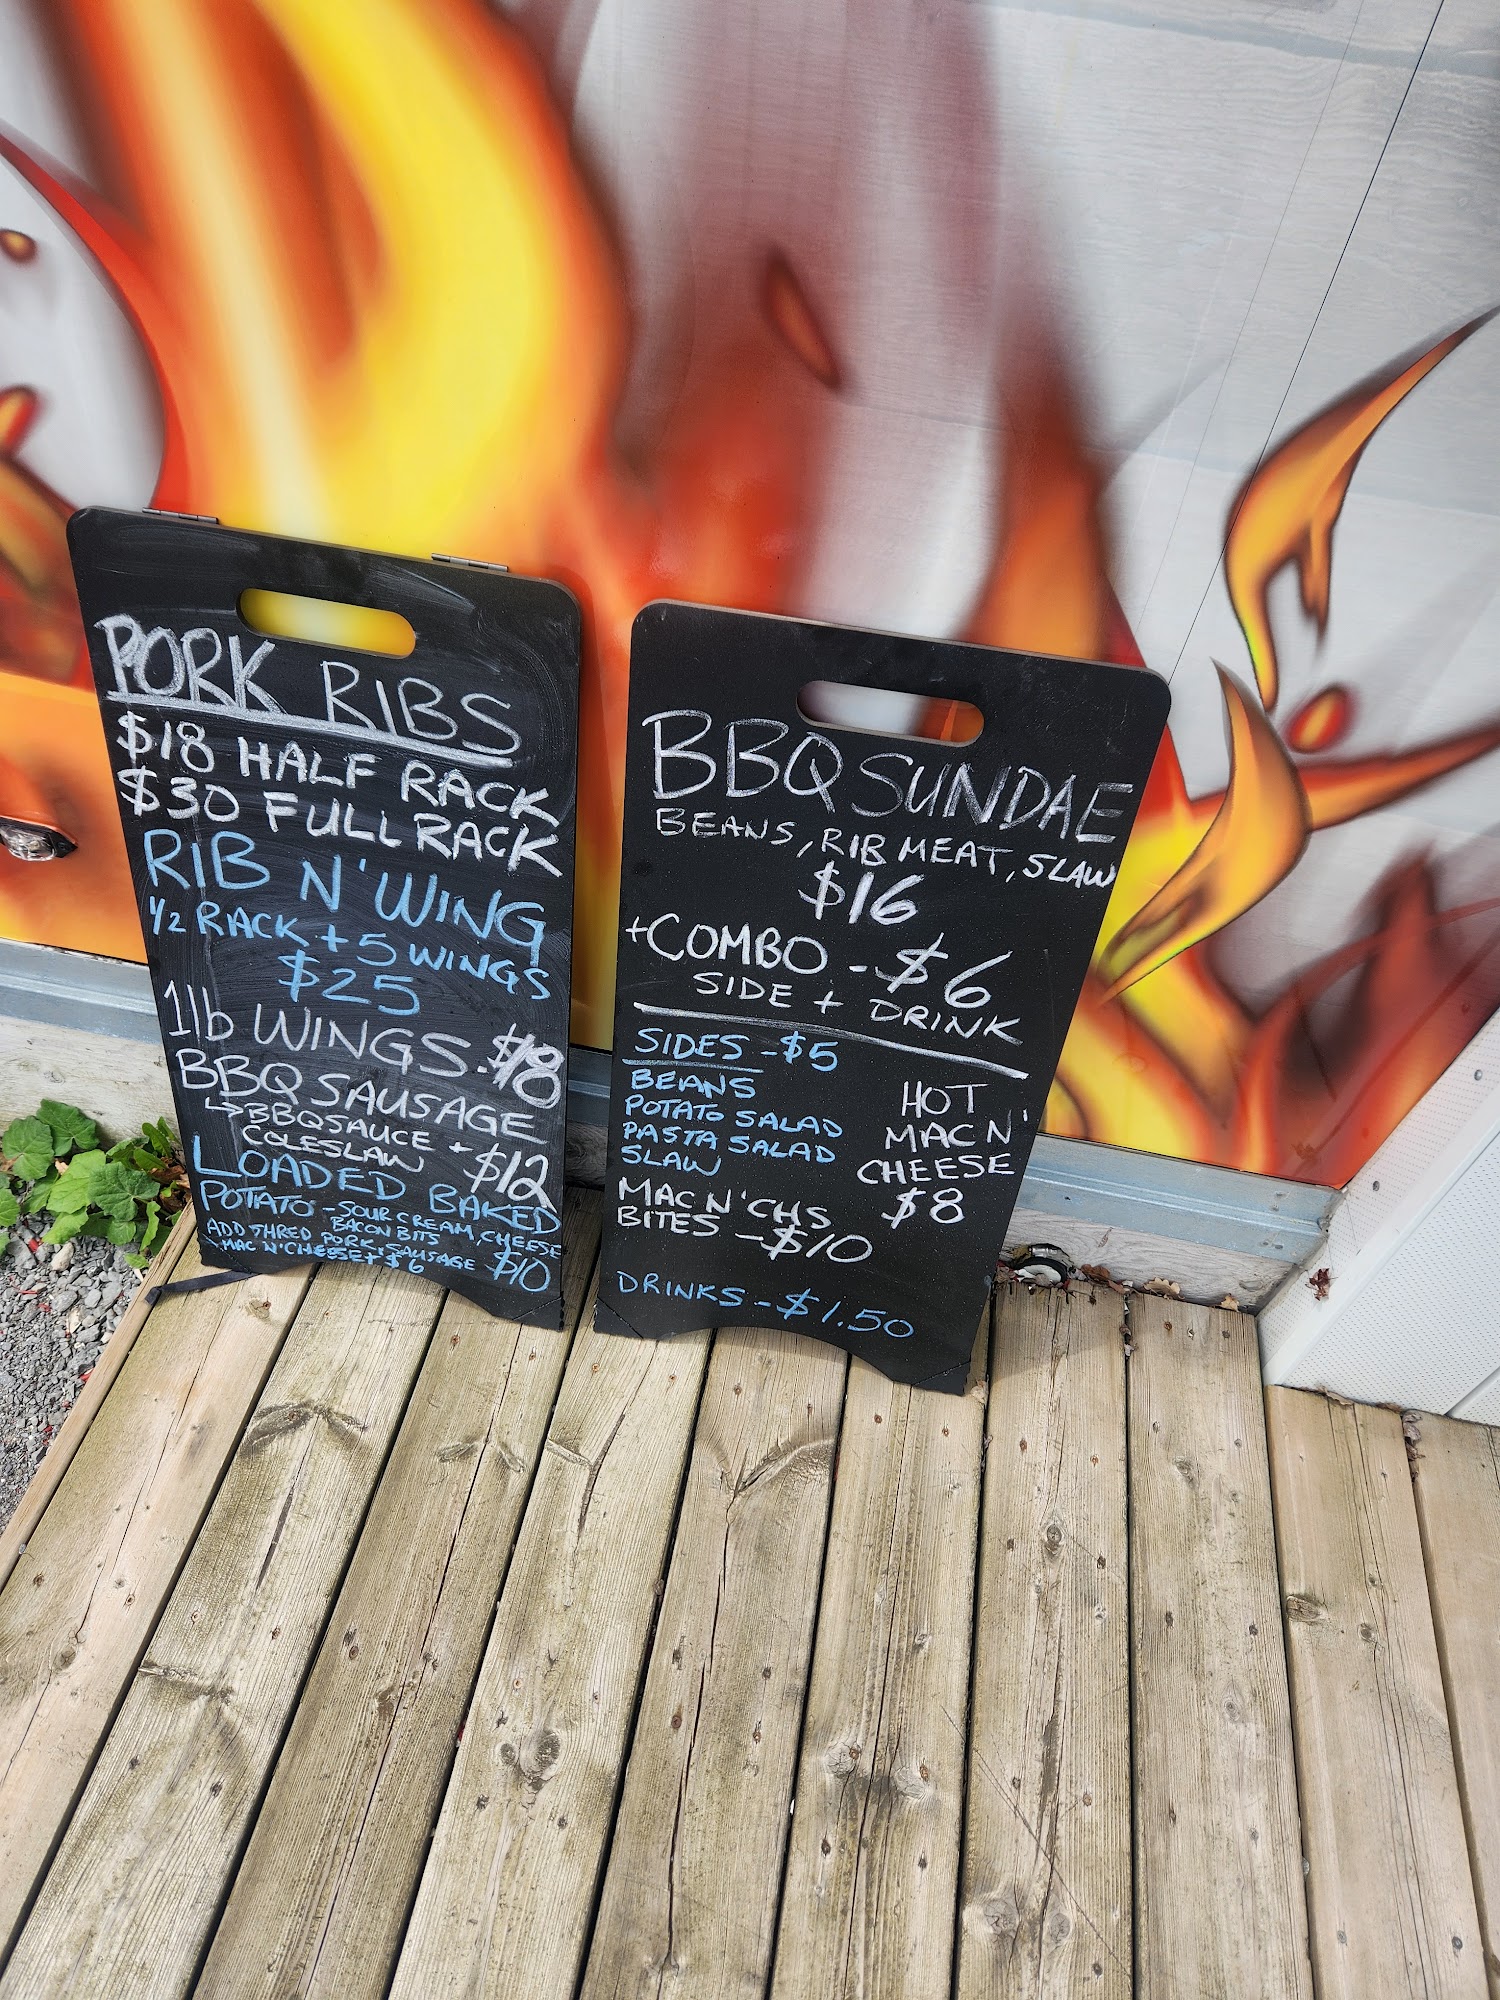 PORK RIBS
$18 HALF RACK
$30 FULL RACK
RIB N' WING
1/2 RACK + 5 WINGS
$25
1lb WINGS - $18
BBQ SAUSAGE
↳ BBQ SAUCE +
COLESLAW - $12
LOADED BAKED
POTATO - SOUR CREAM, CHEESE
BACON BITS
ADD SHRED PORK, SAUSAGE
MAC N' CHEESE + $6 $10
BBQ SUNDAE
BEANS, RIB MEAT, SLAW
$16
+COMBO - $6
SIDE + DRINK
SIDES - $5
BEANS
POTATO SALAD
PASTA SALAD
SLAW
HOT
MAC N'
CHEESE
$8
MAC N' CHS
BITES - $10
DRINKS - $1.50